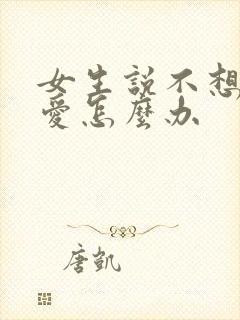 女生説不想
愛怎麼办
唐凱